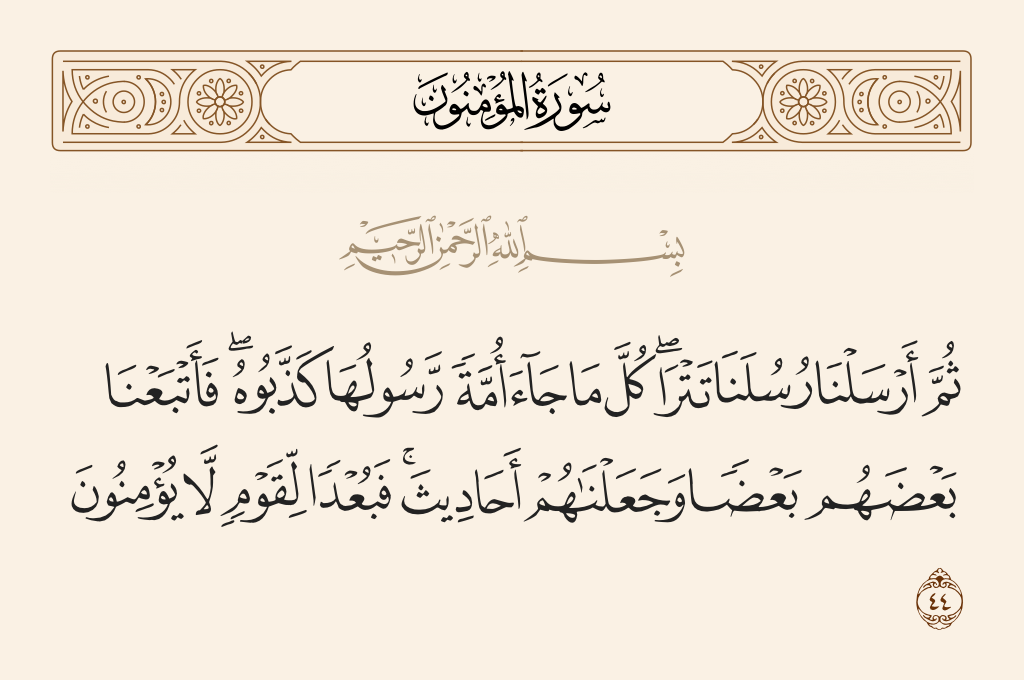 سُورَةُ الْمُؤْمِنُونَ
بِسْمِ ٱللَّهِ ٱلرَّحْمَٰنِ ٱلرَّحِيمِ
ثُمَّ أَرْسَلْنَا رُسُلَنَا تَتْرَا ۖ كُلَّ مَا جَآءَ أُمَّةً رَّسُولُهَا كَذَّبُوهُ ۖ فَأَتْبَعْنَا
بَعْضَهُم بَعْضًا وَجَعَلْنَٰهُمْ أَحَادِيثَ ۚ فَبُعْدًا لِّقَوْمٍ لَّا يُؤْمِنُونَ
٤٤